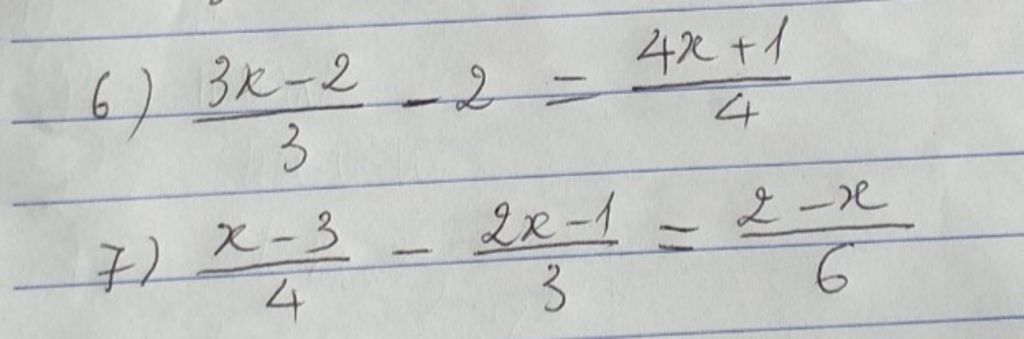 6) (3x-2)/3 - 2 = (4x+1)/4
7) (x-3)/4 - (2x-1)/3 = (2-x)/6